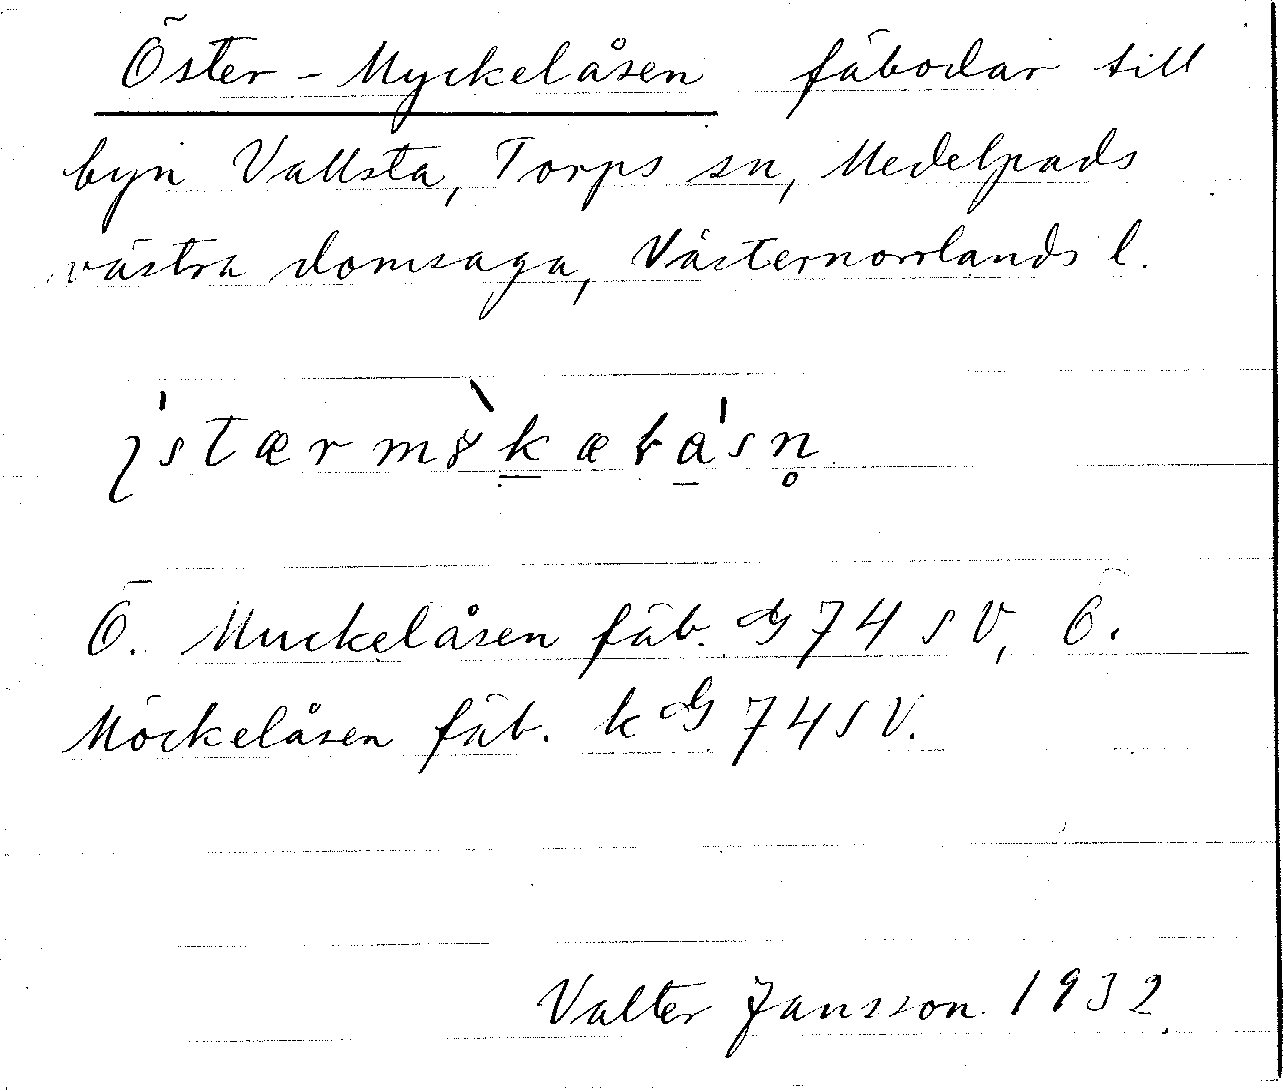 Öster-Myckelåsen fäbodar till
byn Vallsta, Torps sn, Medelpads
västra domsaga, Västernorrlands l.
Ö. Muckelåsen fäb. G 74 SV, Ö.
Möckelåsen fäb. k G 74 SV.
Valter Jansson 1932